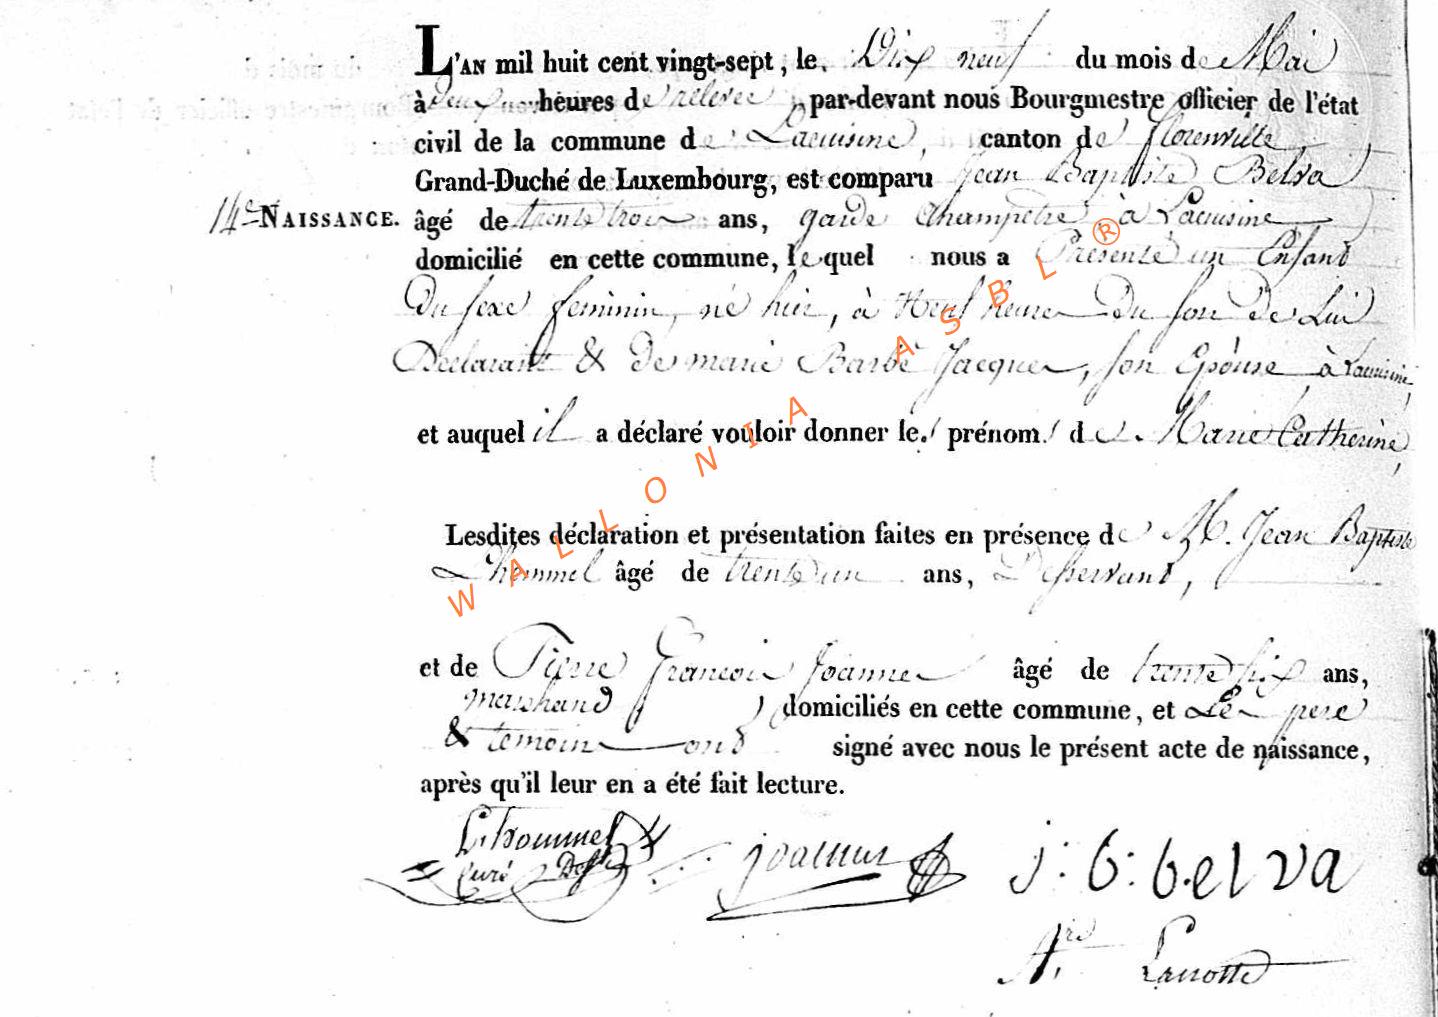 L'AN mil huit cent vingt-sept, le Dix neuf du mois de Mai
à deux heures de relevée, par-devant nous Bourgmestre officier de l'état
civil de la commune de Lacuisine, canton de florenville,
Grand-Duché de Luxembourg, est comparu Jean Baptiste Belva
14e NAISSANCE. âgé de trente trois ans, garde Champetre à Lacuisine
domicilié en cette commune, lequel nous a Présenté un Enfant
Du sexe feminin, né hier, à Neuf heures Du soir De Lui
Declarant & de marie Barbe Jacques, son Epouse, à Lacuisine,
et auquel il a déclaré vouloir donner les prénoms de Marie Catherine,
Lesdites déclaration et présentation faites en présence de M. Jean Baptiste
Lhommel âgé de trente un ans, Desservant,
et de Pierre François Joannes âgé de trente six ans,
marchand, domiciliés en cette commune, et Le pere
& temoins ont signé avec nous le présent acte de naissance,
après qu'il leur en a été fait lecture.
Lhommel
Curé Dest
joannes
j: b: belva
Lanotte
WALLONIA ASBL ®